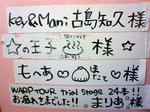 Key&Mani 古島知久 様
☆の王子 様☆
もへあ たて 様
WARP TOUR trial stage 24本!!
お疲れさまでした!! まりあ